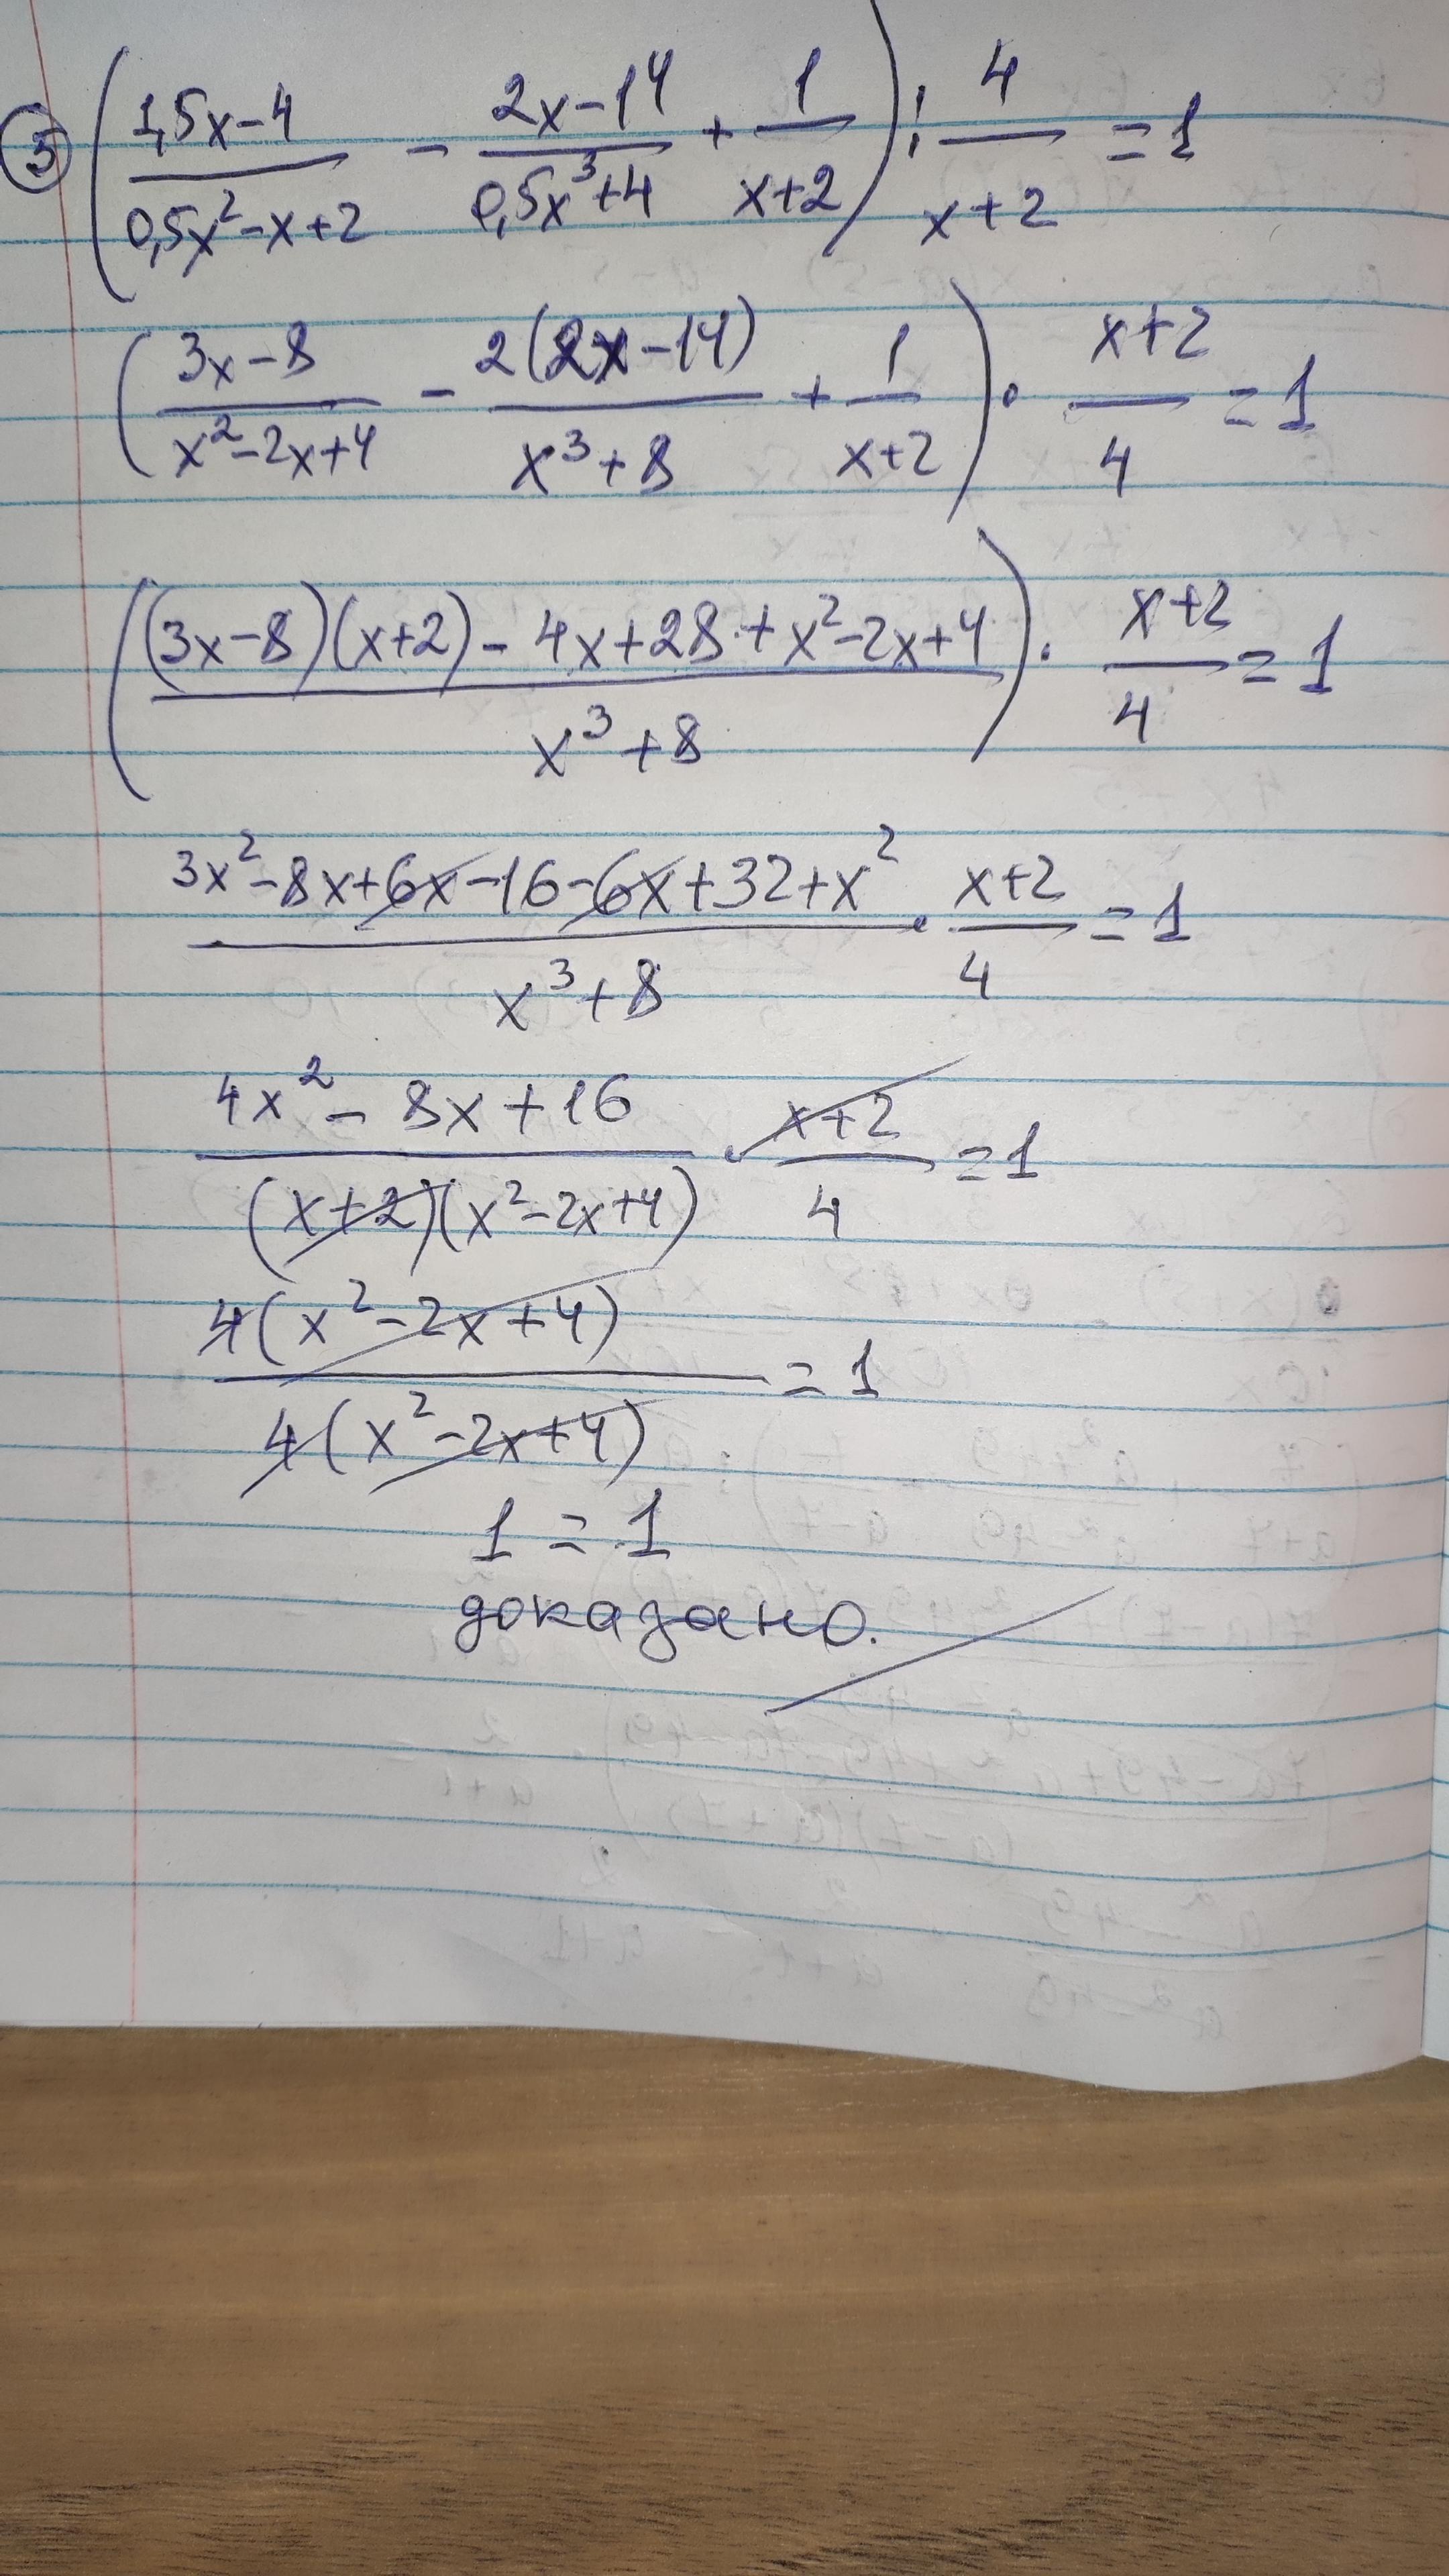 ③ (1,5x-4/0,5x²-x+2 - 2x-14/0,5x³+4 + 1/x+2) : 4/x+2 = 1
(3x-8/x²-2x+4 - 2(2x-14)/x³+8 + 1/x+2) · x+2/4 = 1
((3x-8)(x+2)-4x+28+x²-2x+4/x³+8) · x+2/4 = 1
3x²-8x+6x-16-6x+32+x²/x³+8 · x+2/4 = 1
4x²-8x+16/(x+2)(x²-2x+4) · x+2/4 = 1
4(x²-2x+4)/4(x²-2x+4) = 1
1 = 1
доказано.